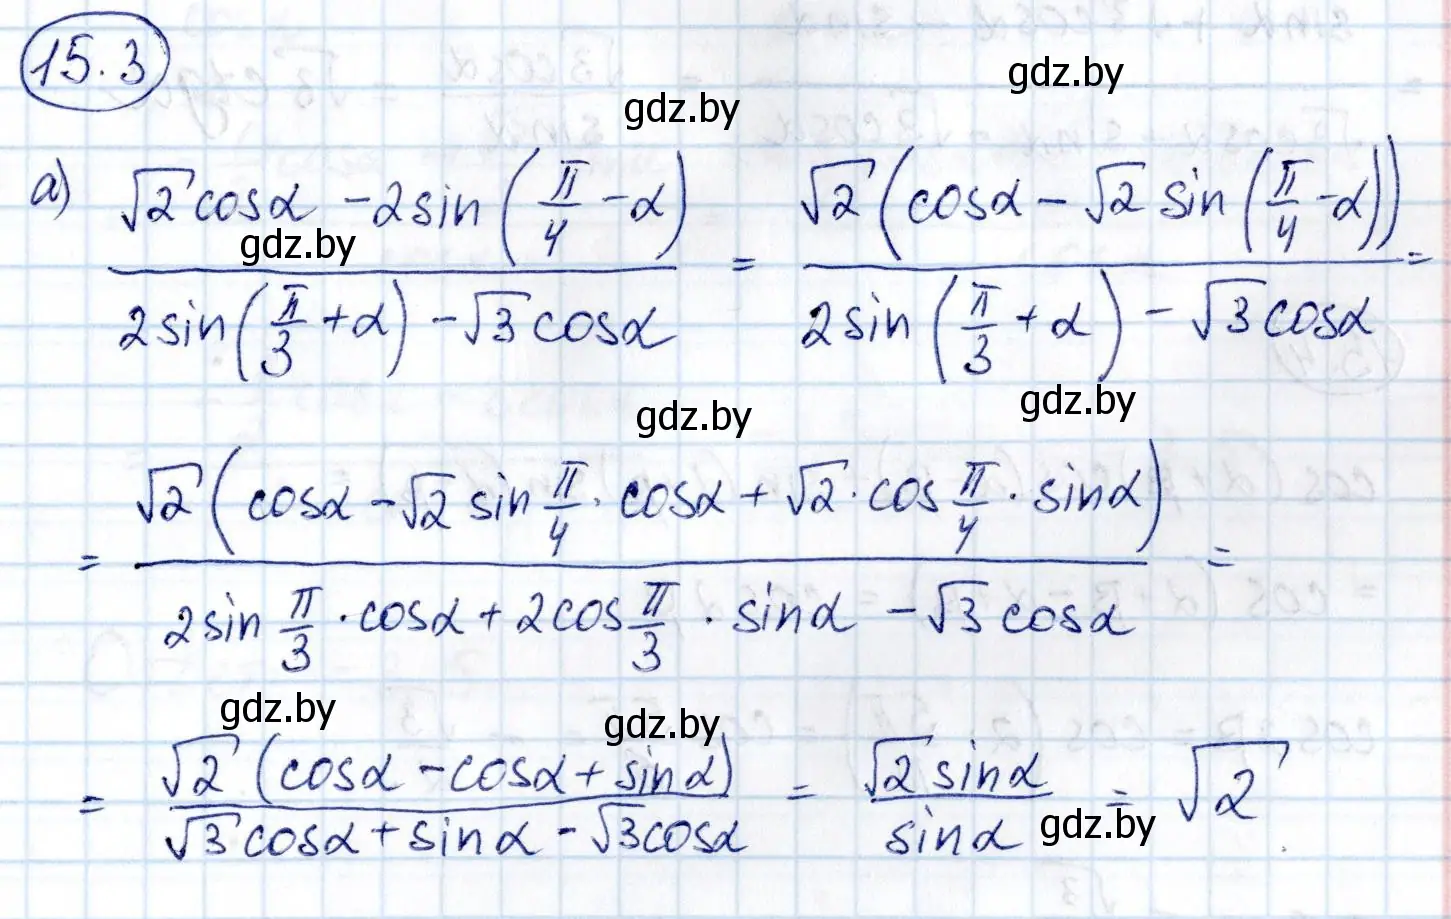 15.3
gdz.by
gdz.by
а) (√2 cosα − 2sin(π/4 − α)) / (2sin(π/3 + α) − √3 cosα) = (√2 (cosα − √2 sin(π/4 − α))) / (2sin(π/3 + α) − √3 cosα) =
gdz.by
gdz.by
gdz.by
= (√2 (cosα − √2 sin π/4 · cosα + √2 · cos π/4 · sinα)) / (2sin π/3 · cosα + 2cos π/3 · sinα − √3 cosα) =
gdz.by
gdz.by
= (√2 (cosα − cosα + sinα)) / (√3 cosα + sinα − √3 cosα) = (√2 sinα) / (sinα) = √2
gdz.by